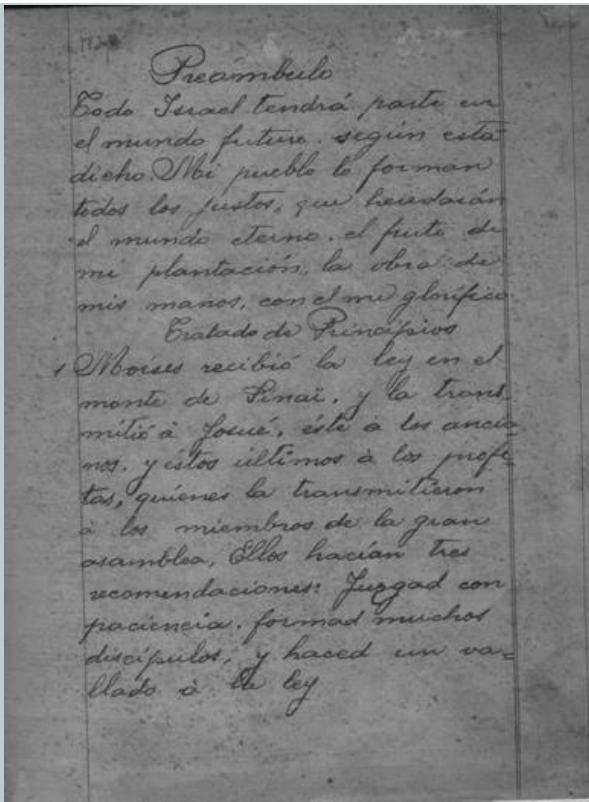 Preámbulo
Todo Israel tendrá parte en
el mundo futuro. según está
dicho. Mi pueblo lo forman
todos los justos, que heredarán
el mundo eterno. el fruto de
mi plantación, la obra de
mis manos, con el me glorífico
Tratado de Principios
1 Moises recibió la ley en el
monte de Sinaï, y la trans-
mitió à Josué, éste à los ancia-
nos. y éstos últimos à los profe-
tas, quienes la transmitieron
à los miembros de la gran
asamblea, Ellos hacían tres
recomendaciones: Juzgad con
paciencia. formad muchos
discípulos, y haced un va=
llado à la ley